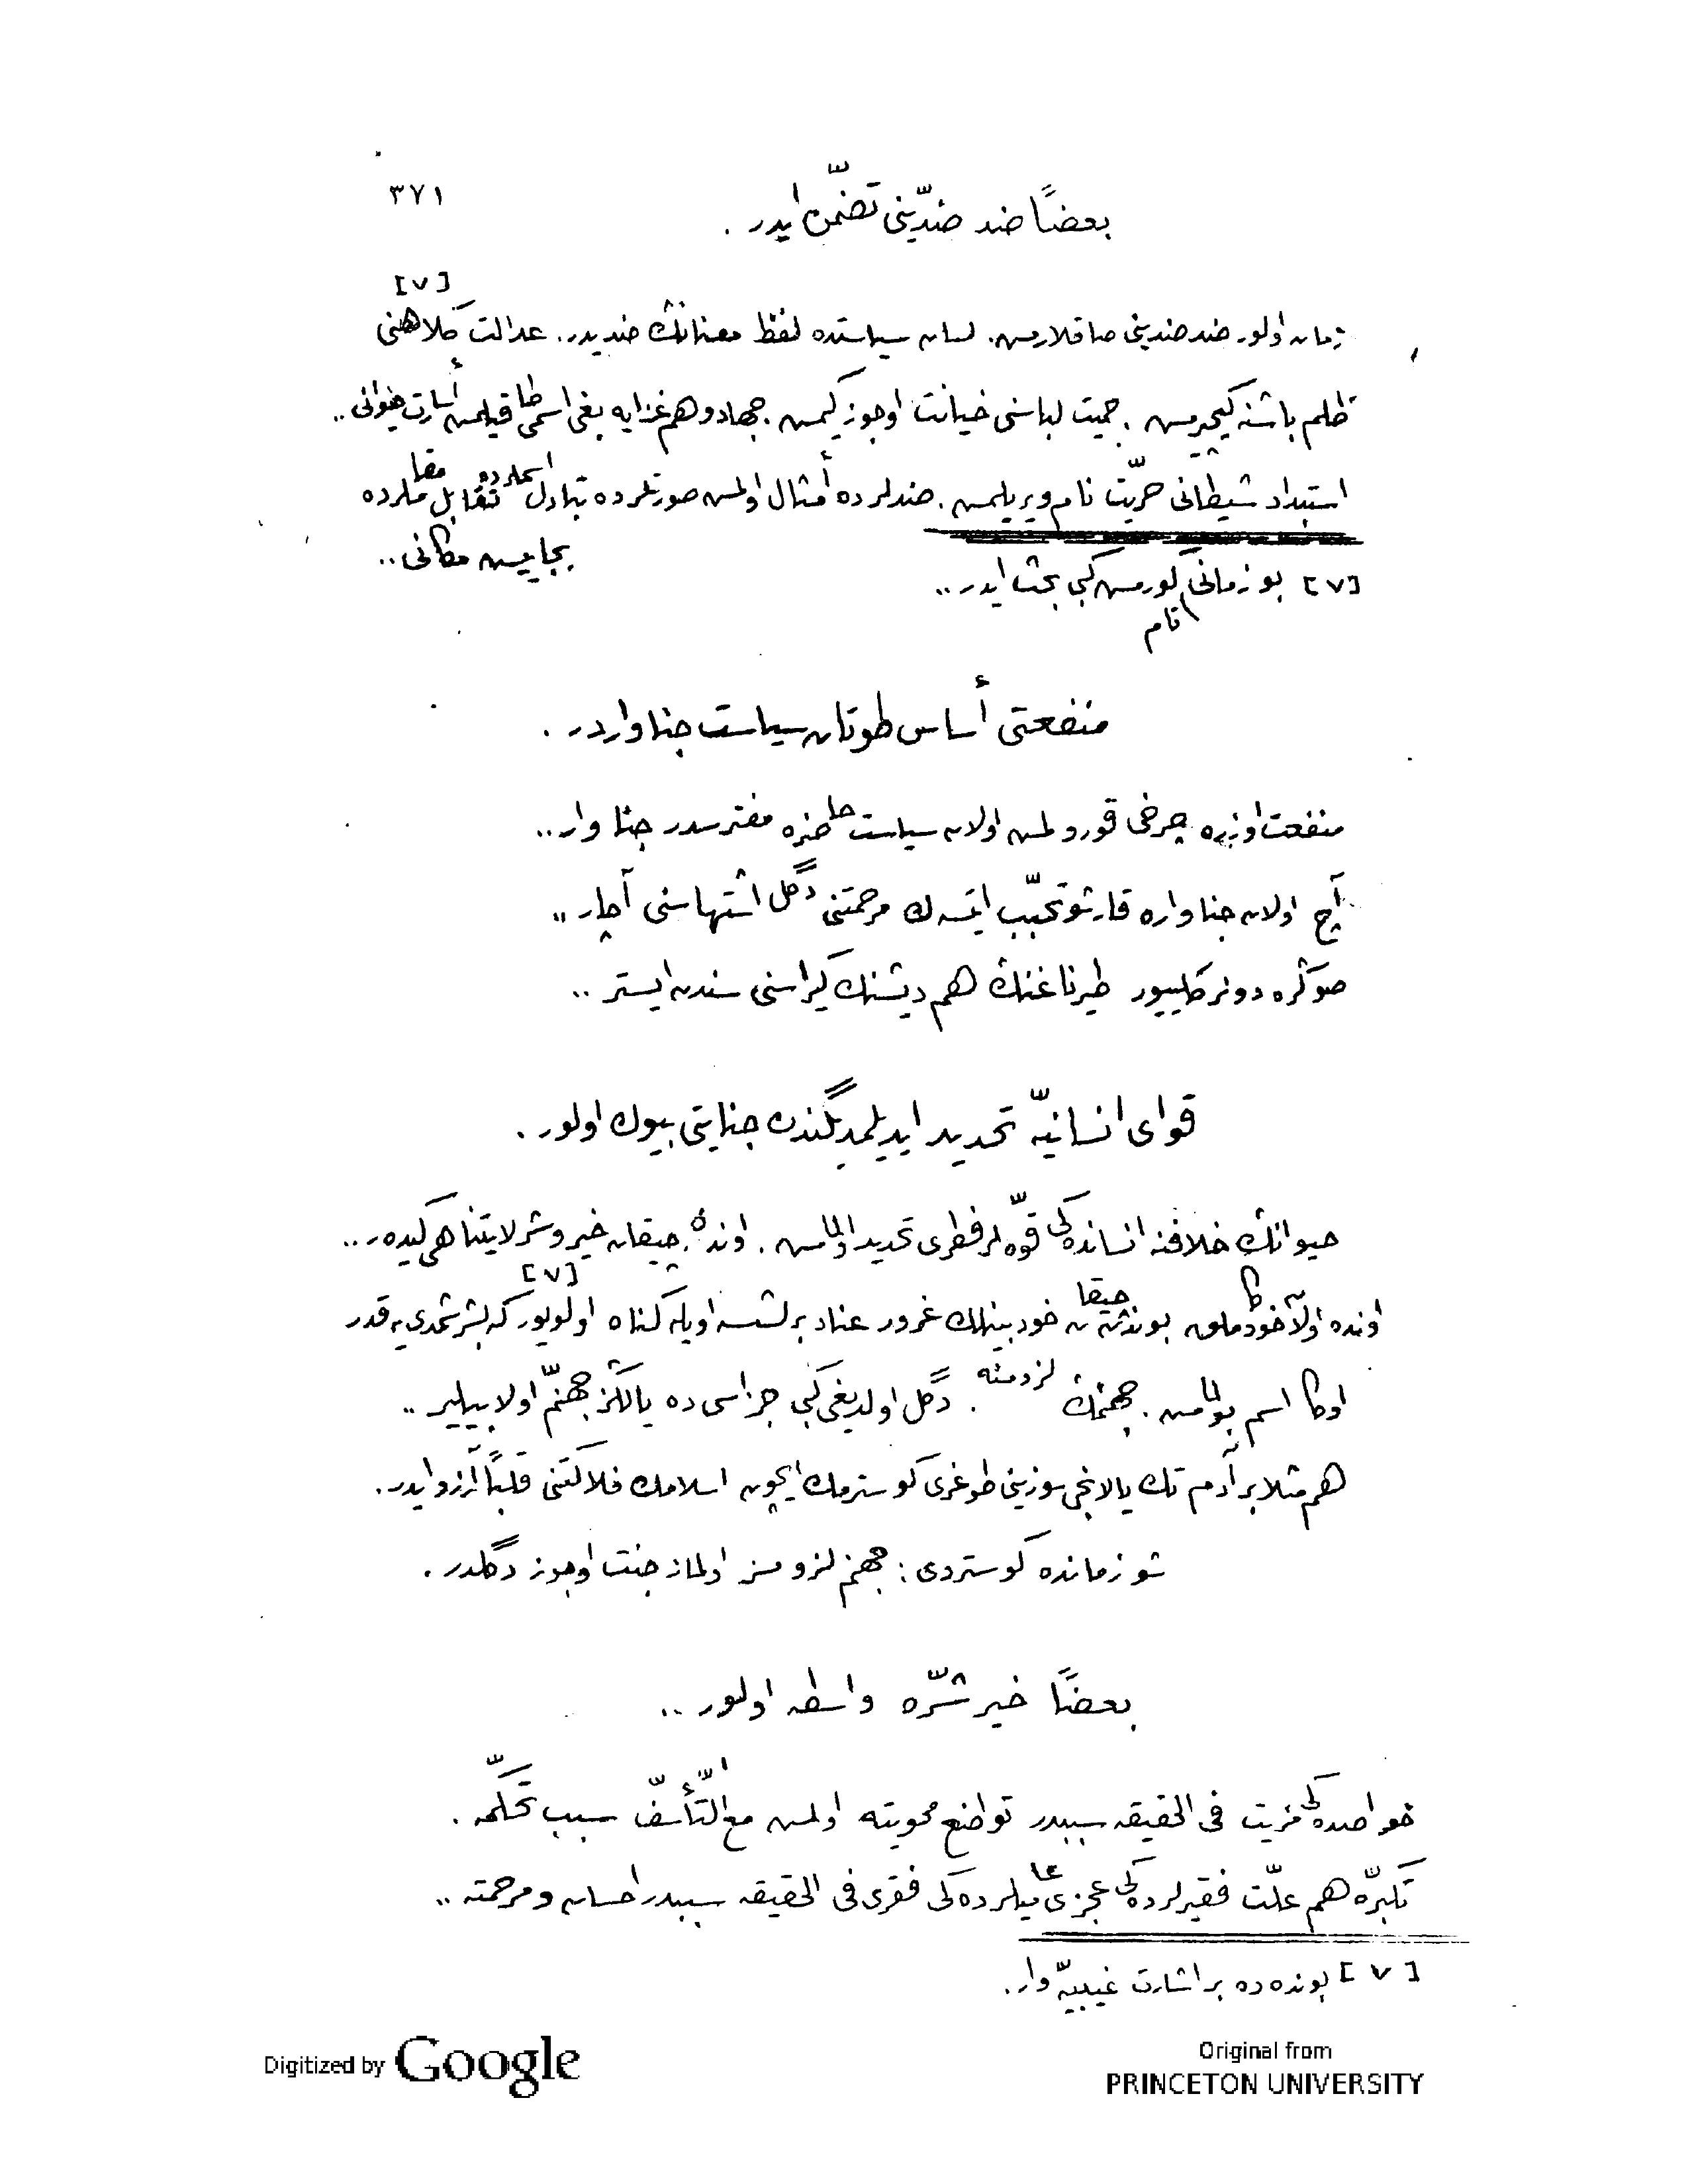 ٣٧١
بعضًا ضد ضدّينى تضمّن ايدر .
[٧]
زمان اولور ضد ضدينى صاقلارمس. لسان سياستده لفظ معنانڭ ضديدر. عدالت كلاهنى
ظلم باشنه كيچيرمس . حميت لباسنى خيانت اوجوز كيمس . جهاد و هم غزايه بغى اسمى طاقيلمس أسارت حيوانى ..
استبداد شيطانى حرّيت نام ويريلمس . ضدلرده أمثال اولمس صورتلرده تبادل اسملرده تقابل مقاملرده
بجايس مكانى ..
[٧] بو زمانى تام كورمس كبى بحث ايدر ..
منفعتى أساس طوتان سياست جناواردر .
منفعت اوزره چرخى قورولمس اولان سياست حاضره مفترسدر جناوار ..
آچ اولان جناواره قارشو تحبّب ايتسه ك مرحمتنى دگل اشتهاسنى آچار ..
صوڭره دونر كلييور طيرناغنڭ هم ديشنڭ كيراسنى سندن ايستر ..
قواى انسانيّه تحديد ايديلمديگندن جنايتى بيوك اولور .
حيوانڭ خلافنه انسانده كى قوّه لر فطرى تحديد اولمامس . اونده چيقان خير و شر لايتناهى كيدر ..
[٧]
اونده اولان خودكاملق بوندن چيقان خودبينلك غرور عناد برلشسه اويله كناه اولويور كه بشر شمدى يه قدر
اوكا اسم بولمامس . جهنمڭ لزومنه . دگل اولديغى كبى جزاسى ده ياڭلز جهنّم اولابيلير ..
هم مثلا بر آدم تك يالانجى سوزينى طوغرى كوسترمك ايچون اسلامك فلاكتنى قلبًا آرزو ايدر .
شو زمانده كوستردى : جهنم لزومسز اولماز جنت اوجوز دگلدر .
بعضًا خير شرّه واسطه اولور ..
خواصده كى مزيت فى الحقيقه سببدر تواضع محويته اولمس مع التّأسّف سبب تحكّمه .
تكبّره هم علّت فقيرلرده كى عجزى عاميلرده كى فقرى فى الحقيقه سببدر احسان و مرحمته ..
[٧] بونده ده بر اشارت غيبيّه وار .
Digitized by Google
Original from
PRINCETON UNIVERSITY